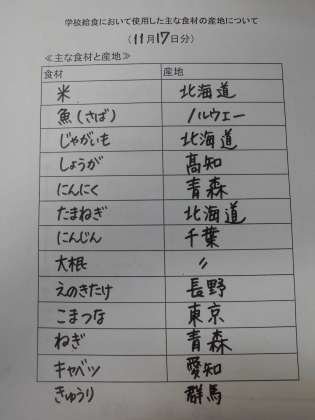 学校給食において使用した主な食材の産地について
(11月17日分)
≪主な食材と産地≫
食材 産地
米 北海道
魚(さば) ノルウェー
じゃがいも 北海道
しょうが 高知
にんにく 青森
たまねぎ 北海道
にんじん 千葉
大根 〃
えのきたけ 長野
こまつな 東京
ねぎ 青森
キャベツ 愛知
きゅうり 群馬